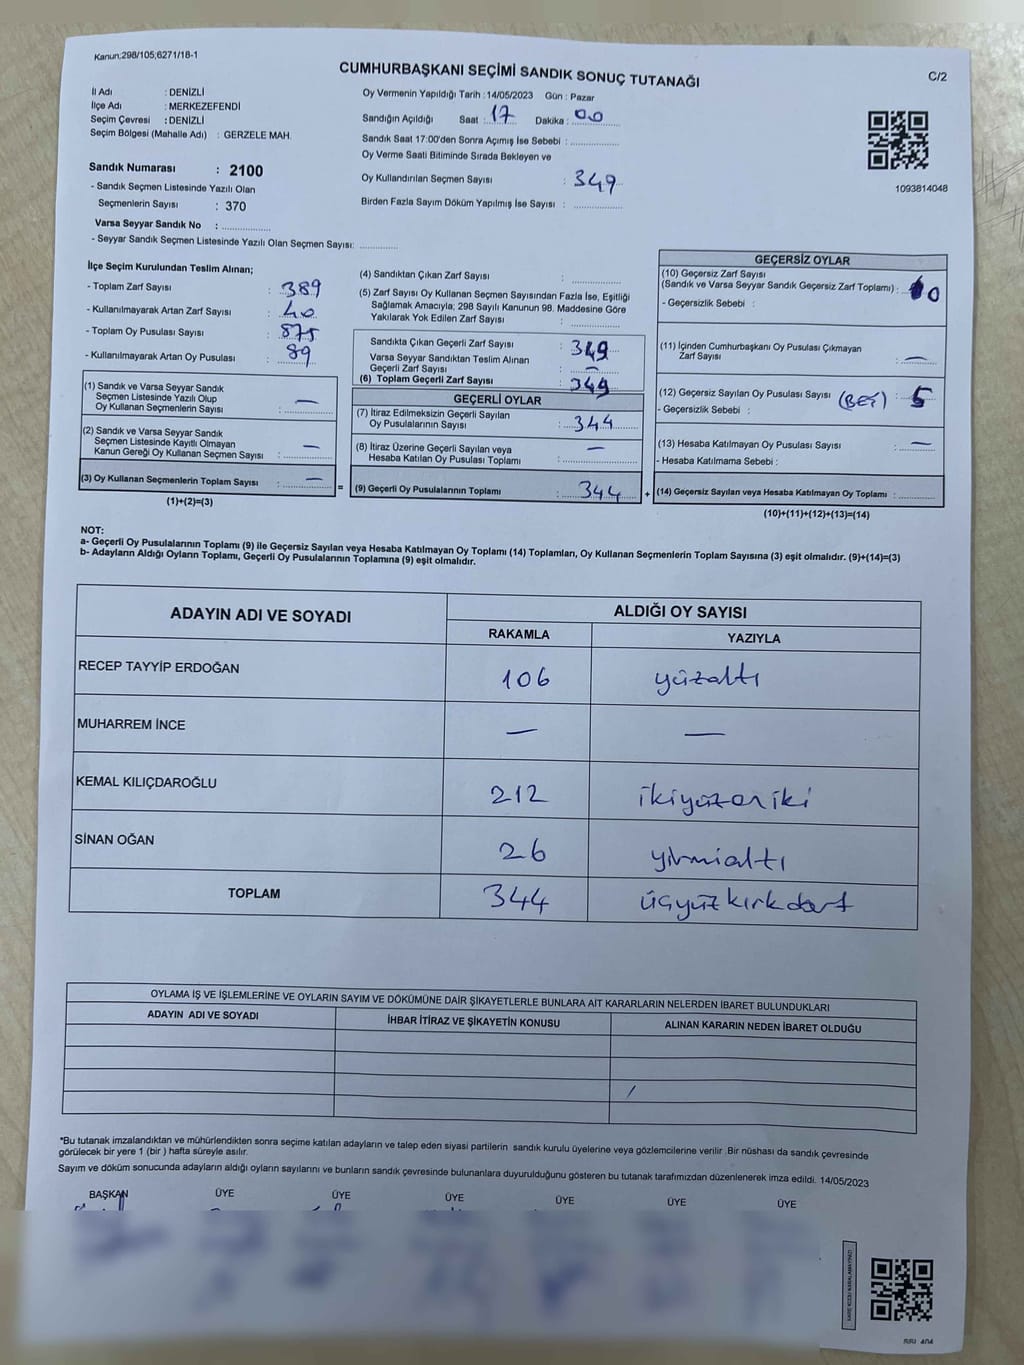 Kanun:298/105,6271/18-1
CUMHURBAŞKANI SEÇİMİ SANDIK SONUÇ TUTANAĞI
C/2
İl Adı : DENİZLİ
İlçe Adı : MERKEZEFENDİ
Seçim Çevresi : DENİZLİ
Seçim Bölgesi (Mahalle Adı) : GERZELE MAH.
Oy Vermenin Yapıldığı Tarih : 14/05/2023 Gün : Pazar
Sandığın Açıldığı Saat : 17 Dakika : 00
Sandık Saat 17:00'den Sonra Açımış İse Sebebi :
Oy Verme Saati Bitiminde Sırada Bekleyen ve
Oy Kullandırılan Seçmen Sayısı : 349
Birden Fazla Sayım Döküm Yapılmış İse Sayısı :
1093814048
Sandık Numarası : 2100
- Sandık Seçmen Listesinde Yazılı Olan
Seçmenlerin Sayısı : 370
Varsa Seyyar Sandık No :
- Seyyar Sandık Seçmen Listesinde Yazılı Olan Seçmen Sayısı:
İlçe Seçim Kurulundan Teslim Alınan;
- Toplam Zarf Sayısı : 389
- Kullanılmayarak Artan Zarf Sayısı : 40
- Toplam Oy Pusulası Sayısı : 875
- Kullanılmayarak Artan Oy Pusulası : 89
(1) Sandık ve Varsa Seyyar Sandık
Seçmen Listesinde Yazılı Olup
Oy Kullanan Seçmenlerin Sayısı : —
(2) Sandık ve Varsa Seyyar Sandık
Seçmen Listesinde Kayıtlı Olmayan
Kanun Gereği Oy Kullanan Seçmen Sayısı : —
(3) Oy Kullanan Seçmenlerin Toplam Sayısı : —
(1)+(2)=(3)
=
(4) Sandıktan Çıkan Zarf Sayısı :
(5) Zarf Sayısı Oy Kullanan Seçmen Sayısından Fazla İse, Eşitliği
Sağlamak Amacıyla; 298 Sayılı Kanunun 98. Maddesine Göre
Yakılarak Yok Edilen Zarf Sayısı :
Sandıkta Çıkan Geçerli Zarf Sayısı : 349
Varsa Seyyar Sandıktan Teslim Alınan
Geçerli Zarf Sayısı : —
(6) Toplam Geçerli Zarf Sayısı : 349
GEÇERLİ OYLAR
(7) İtiraz Edilmeksizin Geçerli Sayılan
Oy Pusulalarının Sayısı : 344
(8) İtiraz Üzerine Geçerli Sayılan veya
Hesaba Katılan Oy Pusulası Toplamı : —
(9) Geçerli Oy Pusulalarının Toplamı : 344
+
GEÇERSİZ OYLAR
(10) Geçersiz Zarf Sayısı
(Sandık ve Varsa Seyyar Sandık Geçersiz Zarf Toplamı) : 0
- Geçersizlik Sebebi :
(11) İçinden Cumhurbaşkanı Oy Pusulası Çıkmayan
Zarf Sayısı : —
(12) Geçersiz Sayılan Oy Pusulası Sayısı (BEŞ) : 5
- Geçersizlik Sebebi :
(13) Hesaba Katılmayan Oy Pusulası Sayısı : —
- Hesaba Katılmama Sebebi :
(14) Geçersiz Sayılan veya Hesaba Katılmayan Oy Toplamı :
(10)+(11)+(12)+(13)=(14)
NOT:
a- Geçerli Oy Pusulalarının Toplamı (9) ile Geçersiz Sayılan veya Hesaba Katılmayan Oy Toplamı (14) Toplamları, Oy Kullanan Seçmenlerin Toplam Sayısına (3) eşit olmalıdır. (9)+(14)=(3)
b- Adayların Aldığı Oyların Toplamı, Geçerli Oy Pusulalarının Toplamına (9) eşit olmalıdır.
ADAYIN ADI VE SOYADI
ALDIĞI OY SAYISI
RAKAMLA YAZIYLA
RECEP TAYYİP ERDOĞAN 106 yüzaltı
MUHARREM İNCE — —
KEMAL KILIÇDAROĞLU 212 ikiyüzoniki
SİNAN OĞAN 26 yirmialtı
TOPLAM 344 üçyüzkırkdört
OYLAMA İŞ VE İŞLEMLERİNE VE OYLARIN SAYIM VE DÖKÜMÜNE DAİR ŞİKAYETLERLE BUNLARA AİT KARARLARIN NELERDEN İBARET BULUNDUKLARI
ADAYIN ADI VE SOYADI İHBAR İTİRAZ VE ŞİKAYETİN KONUSU ALINAN KARARIN NEDEN İBARET OLDUĞU
*Bu tutanak imzalandıktan ve mühürlendikten sonra seçime katılan adayların ve talep eden siyasi partilerin sandık kurulu üyelerine veya gözlemcilerine verilir .Bir nüshası da sandık çevresinde
görülecek bir yere 1 (bir ) hafta süreyle asılır.
Sayım ve döküm sonucunda adayların aldığı oyların sayılarını ve bunların sandık çevresinde bulunanlara duyurulduğunu gösteren bu tutanak tarafımızdan düzenlenerek imza edildi. 14/05/2023
BAŞKAN ÜYE ÜYE ÜYE ÜYE ÜYE ÜYE